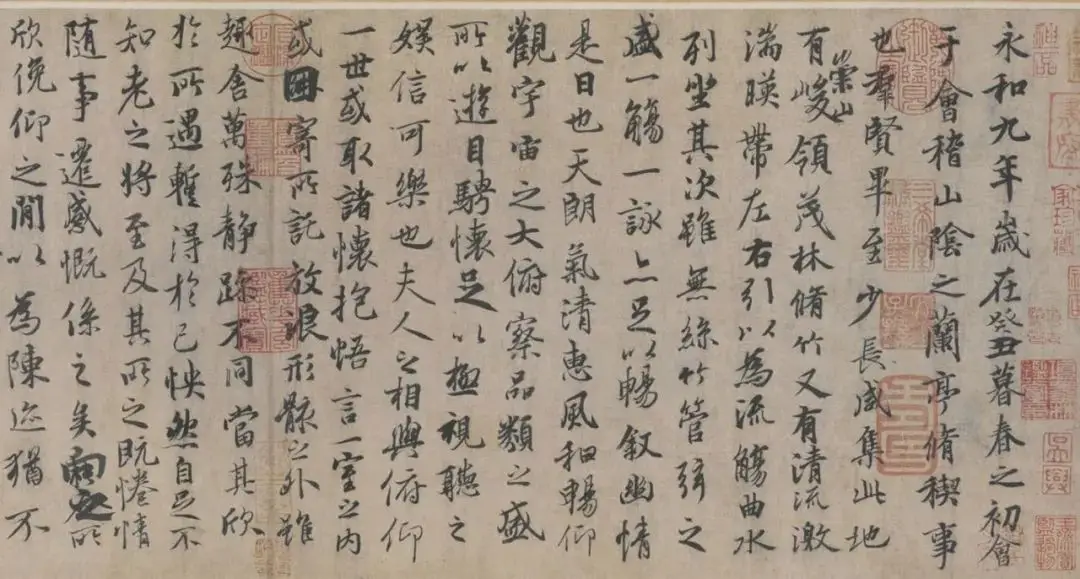 永和九年歲在癸丑暮春之初會
于會稽山陰之蘭亭脩稧事
也羣賢畢至少長咸集此地
有崇山峻領茂林脩竹又有清流激
湍暎帶左右引以為流觴曲水
列坐其次雖無絲竹管弦之
盛一觴一詠亦足以暢叙幽情
是日也天朗氣清惠風和暢仰
觀宇宙之大俯察品類之盛
所以遊目騁懷足以極視聽之
娱信可樂也夫人之相與俯仰
一世或取諸懷抱悟言一室之内
或因寄所託放浪形骸之外雖
趣舍萬殊静躁不同當其欣
於所遇蹔得於己怏然自足不
知老之將至及其所之既惓情
隨事遷感慨係之矣向之所
欣俛仰之閒以為陳迹猶不